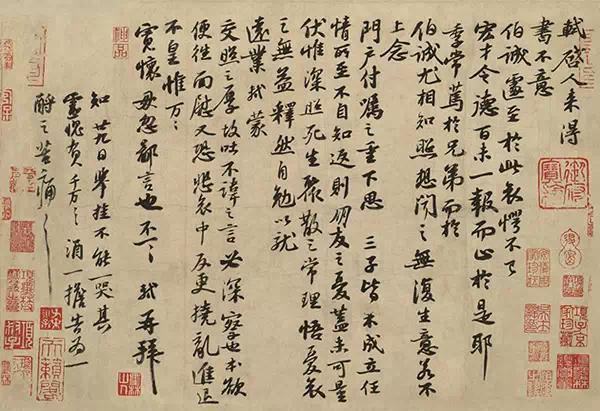 軾啓人來得
書不意
伯誠遽至於此哀愕不已
宏才令德百未一報而止於是耶
季常篤於兄弟而於
伯誠尤相知照想聞之無復生意若不
上念
門戶付囑之重下思三子皆不成立任
情所至不自知返則朋友之憂蓋未可量
伏惟深照死生聚散之常理悟憂哀
之無益釋然自勉以就
遠業軾蒙
交照之厚故吐不諱之言必深察也本欲
便往面慰又恐悲哀中反更撓亂進退
不皇惟万〻
寬懷毋忽鄙言也不一一軾再拜
知廿九日舉挂不能一哭其
靈愧負千万〻酒一擔告為一
酹之苦痛〻〻
天籟閣